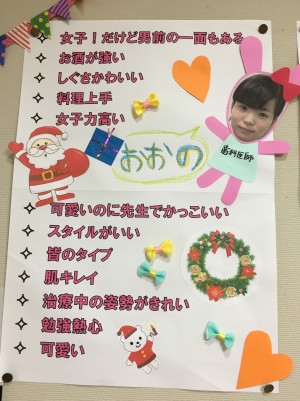 女子！だけど男前の一面もある
お酒が強い
しぐさかわいい
料理上手
女子力高い
おおの
歯科医師
可愛いのに先生でかっこいい
スタイルがいい
皆のタイプ
肌キレイ
治療中の姿勢がきれい
勉強熱心
可愛い